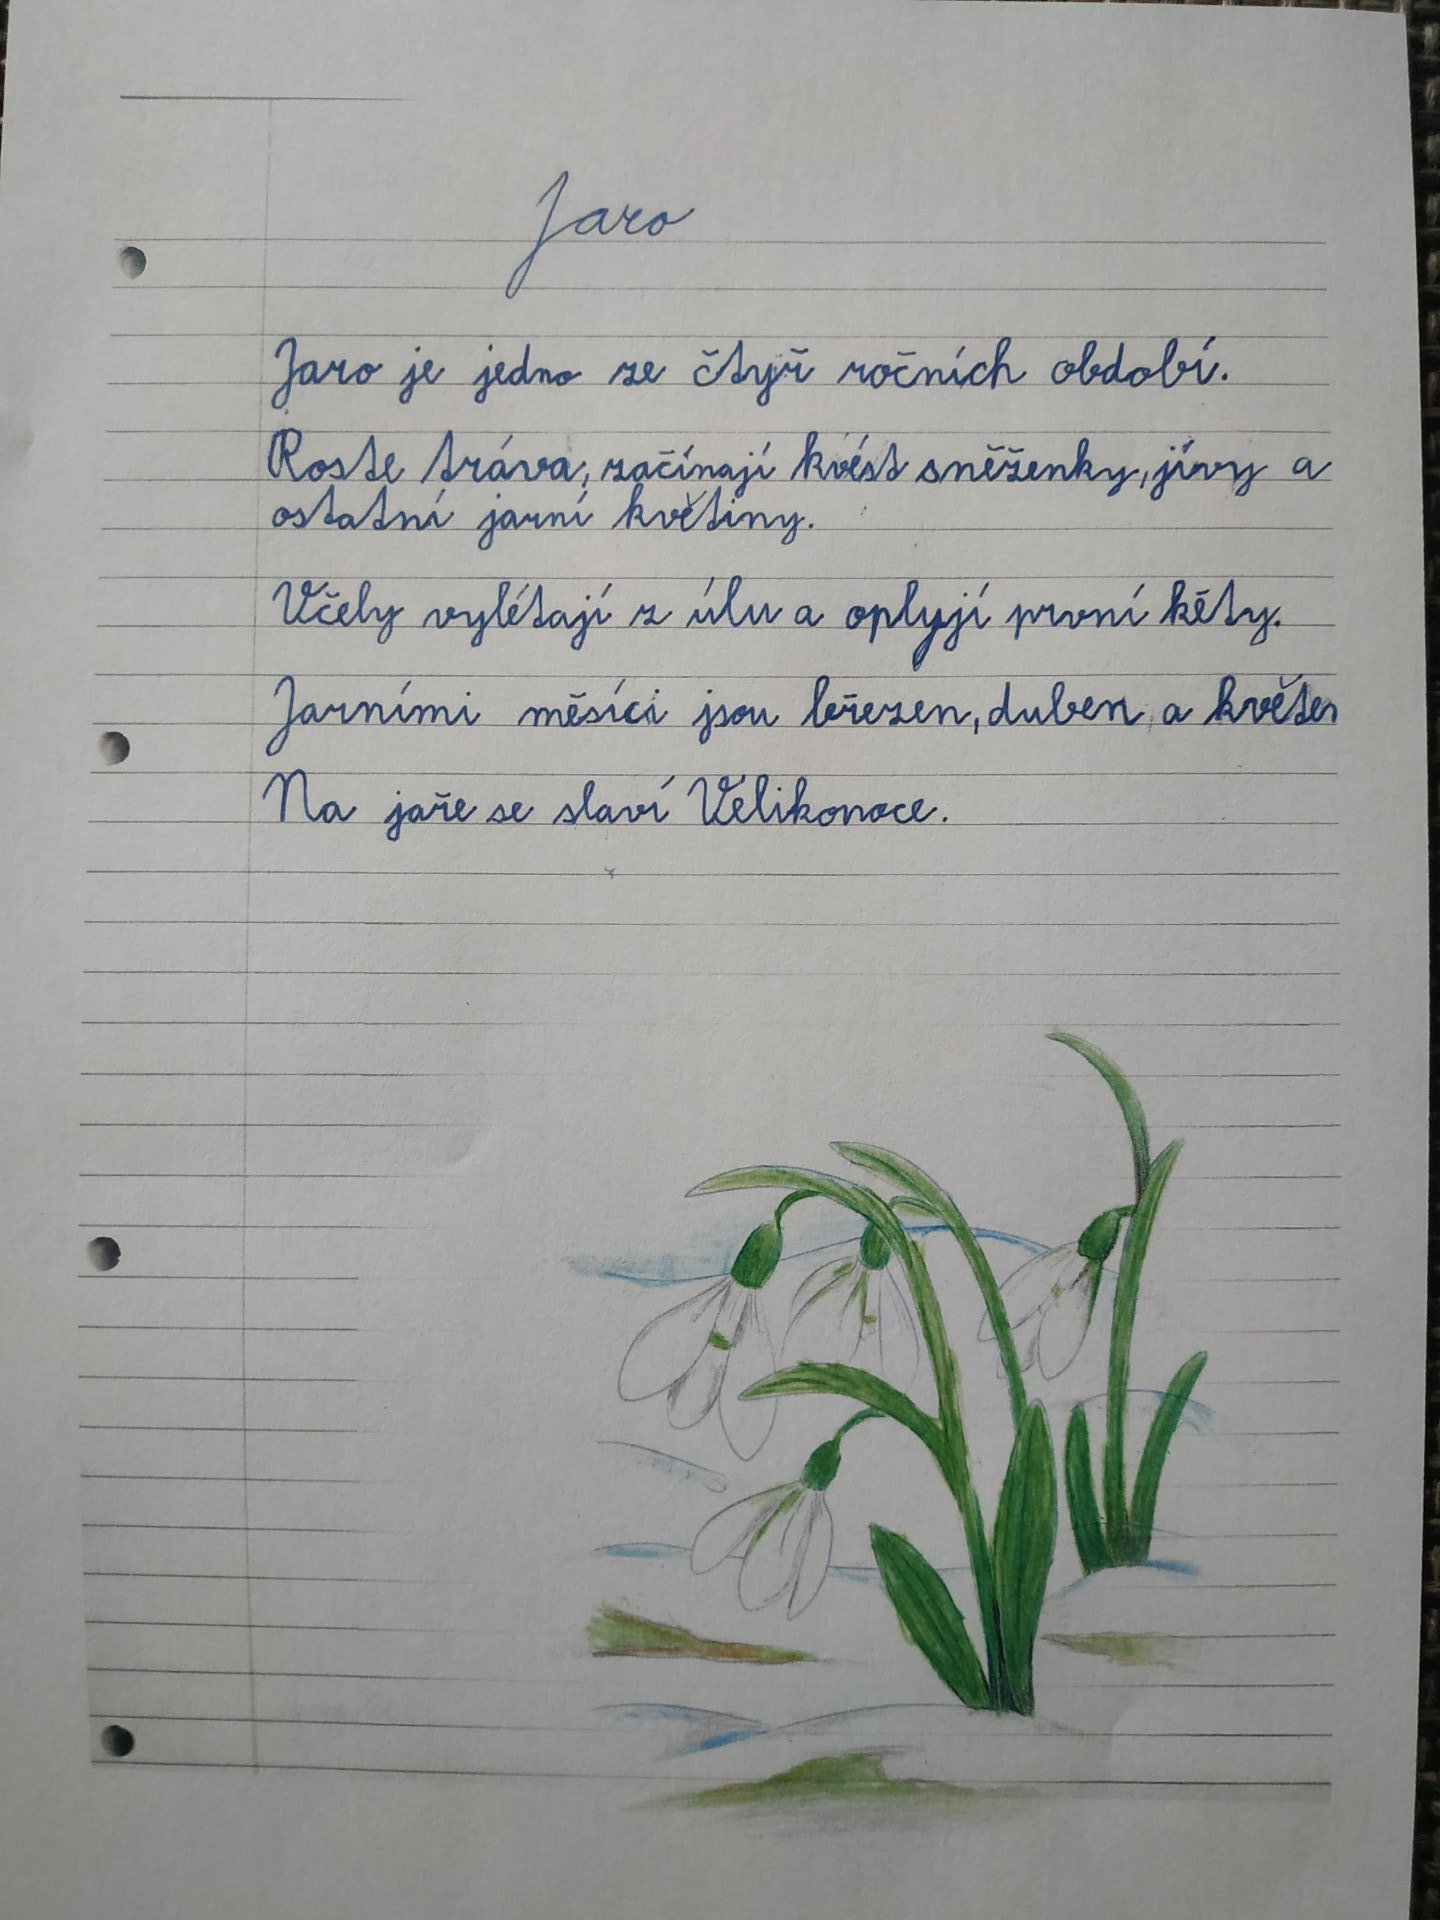 Jaro
Jaro je jedno ze čtyř ročních období.
Roste tráva, začínají kvést sněženky, jívy a
ostatní jarní květiny.
Včely vylétají z úlu a oplyjí první kěty.
Jarními měsíci jsou březen, duben a květen
Na jaře se slaví Velikonoce.